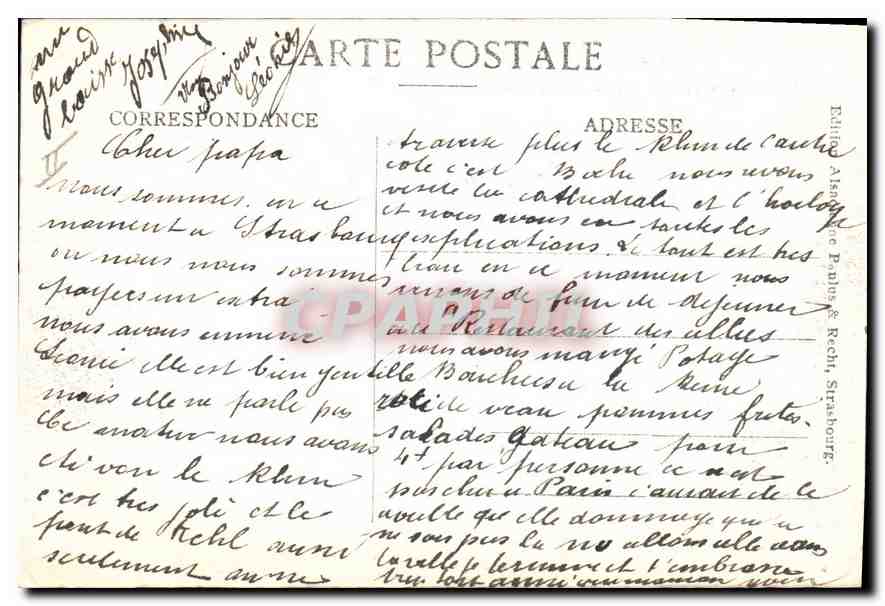 un
grand
baise
Joséphine
Bonjour
Léonie
CARTE POSTALE
CORRESPONDANCE
ADRESSE
II
Cher papa
nous sommes en ce
moment a Strasbourg
ou nous nous sommes
payers un extra
nous avons emmené
Leonie elle est bien gentille
mais elle ne parle pas
Ce matin nous avons
été voir le Rhin
c'est tres joli et le
pont de Kehl aussi
seulement on ne
traverse plus le Rhin de l'autre
coté c'est Boche nous avons
visité la cathedrale et l'horloge
et nous avons eu toutes les
explications. Le tout est tres
beau en ce moment nous
venons de finir de dejeuner
au Restaurant des allies
nous avons mangé Potage
Bouchees a la Reine
roti de veau pommes frites
salades Gateau pour
4f par personne ce n est
pas cher a Paris
dommage que
ne sois pas la nous allons
la ville je termine et t'embrasse
CPAPHIL
Edition Alsacienne Paulus & Recht, Strasbourg.